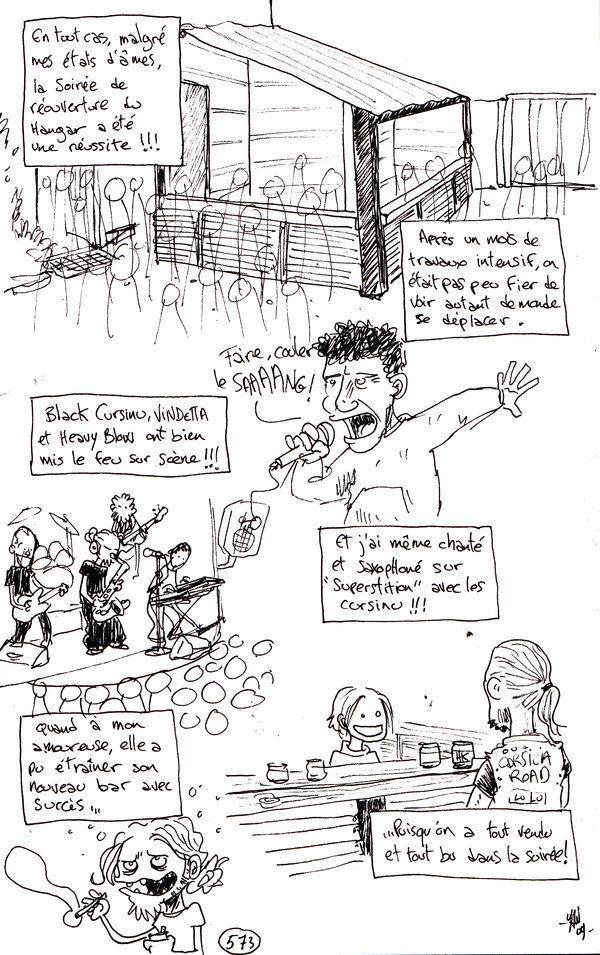 En tout cas, malgré
mes états d'âmes,
la Soirée de
réouverture du
Hangar a été
une réussite !!!
Après un mois de
travaux intensif, on
était pas peu fier de
voir autant de monde
se déplacer.
Faire, couler
le SAAAANG!
Black Cursinu, VINDETTA
et Heavy Blows ont bien
mis le feu sur scène !!!
Et j'ai même chanté
et Saxophoné sur
"Superstition" avec les
cursinu !!!
Quand à mon
amoureuse, elle a
pu étrainer son
nouveau bar avec
succès...
CORSICA
ROAD
...Puisqu'on a tout vendu
et tout bu dans la soirée!
573